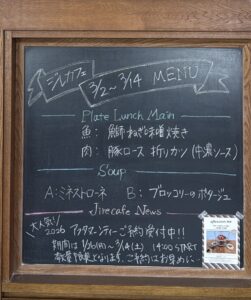 ジレカフェ
3/2〜3/14 MENU
Plate Lunch Main
魚: 鰤ねぎ味噌焼き
肉: 豚ロース 折りカツ (中濃ソース)
Soup
A:ミネストローネ B: ブロッコリーのポタージュ
Jirecafe News
大人気!!
2026 アフタヌーンティーご予約受付中!!
期間は 1/26(月)〜3/14(土) 14:00 START
数量限定となります。ご予約はお早めに…